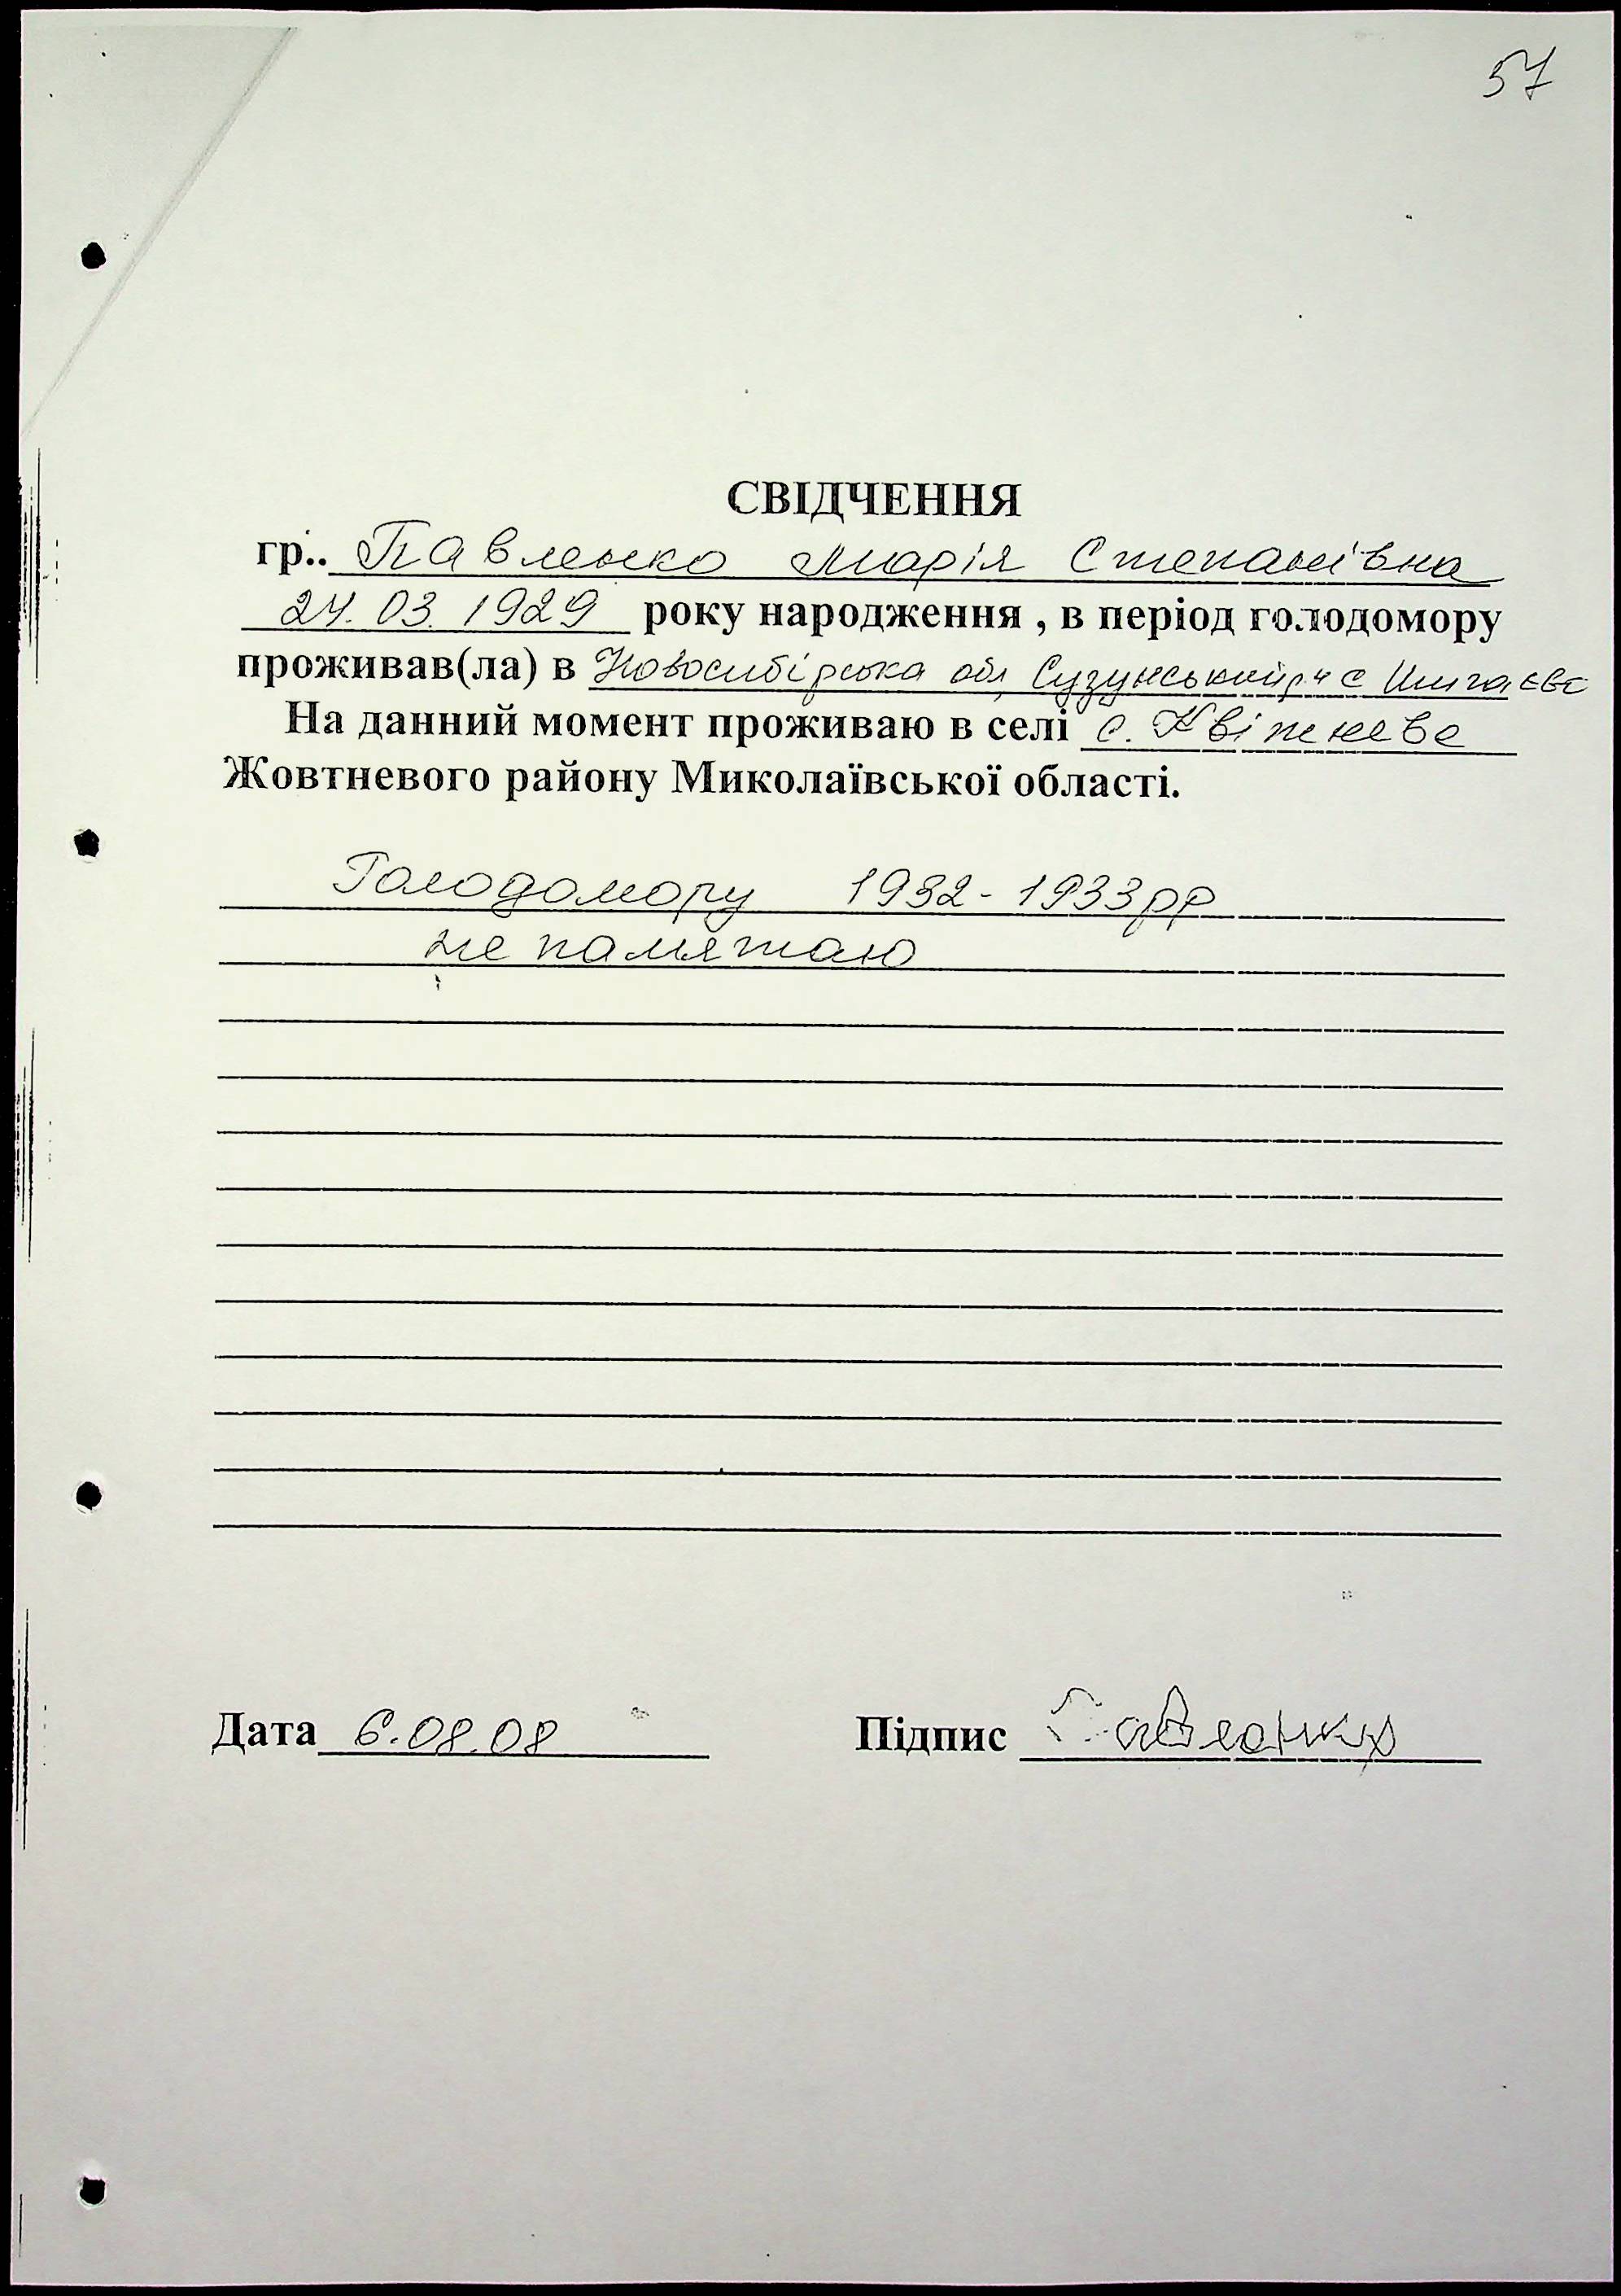 57
СВІДЧЕННЯ
гр.. Павленко Марія Степанівна
24.03.1929 року народження , в період голодомору
проживав(ла) в Новосибірська обл Сузунський р-н с
На данний момент проживаю в селі с. Квітневе
Жовтневого району Миколаївської області.
Голодомору 1932-1933рр
не памятаю
Дата 6.08.08 Підпис Павленко